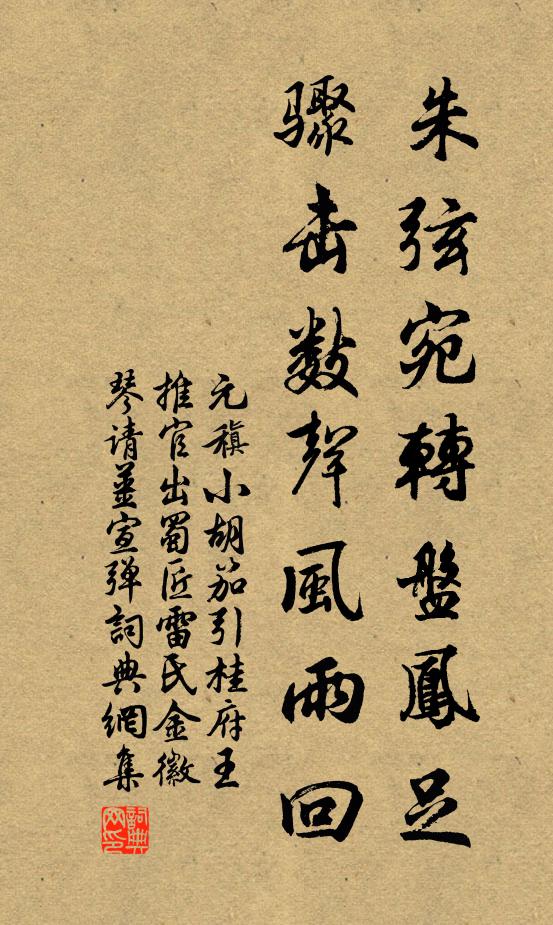 朱弦宛轉盤鳳足
驟击数聲風雨回
元稹小胡笳引桂府王
推官出蜀匠雷氏金徽
琴请薑宣弹詞典網集
詞典网印